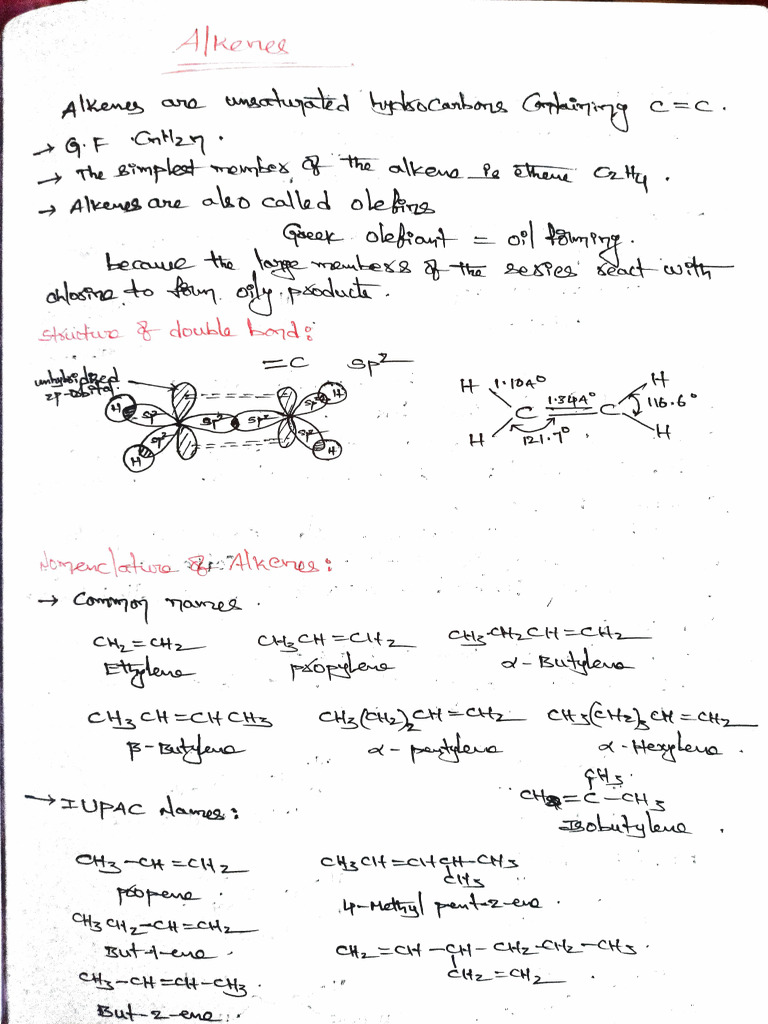 Alkenes
Alkenes are unsaturated hydrocarbons Containing C=C.
→ G.F CnH2n.
→ The simplest member of the alkene is ethene C2H4.
→ Alkenes are also called olefins
Greek olefiant = oil forming.
because the large members of the series react with
chlorine to form oily products.
Structure of double bond:
=C sp2
unhybridized
2p-orbital
H sp2 sp2 sp2 sp2 H
H sp2 sp2 H
H 1.10A° C 1.34A° C H 116.6°
H 121.7° H
Nomenclature of Alkenes:
→ Common names.
CH2=CH2 CH3CH=CH2 CH3-CH2CH=CH2
Ethylene propylene α-Butylene
CH3CH=CHCH3 CH3(CH2)2CH=CH2 CH3(CH2)3CH=CH2
β-Butylene α-pentylene α-Hexylene.
CH3.
→ IUPAC Names: CH2=C-CH3
Isobutylene.
CH3-CH=CH2 CH3CH=CHCH-CH3
CH3
propene. 4-Methyl pent-2-ene.
CH3CH2-CH=CH2
But-1-ene. CH2=CH-CH-CH2-CH2-CH3.
CH2=CH2
CH3-CH=CH-CH3.
But-2-ene.